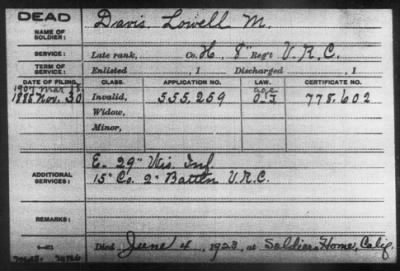 DEAD
NAME OF SOLDIER:
Davis, Lowell M.
SERVICE:
Late rank, Co. H, 8" Reg't V.R.C.
TERM OF SERVICE:
Enlisted , 1 Discharged , 1
DATE OF FILING. CLASS. APPLICATION NO. LAW. CERTIFICATE NO.
1907 Mar
1885 Nov. 30 Invalid, 555,259 778,602
Widow,
Minor,
ADDITIONAL SERVICES:
E. 29" Wis. Inf
15" Co. 2" Battln V.R.C.
REMARKS:
Died June 4, 1923, at Soldiers Home, Calif.